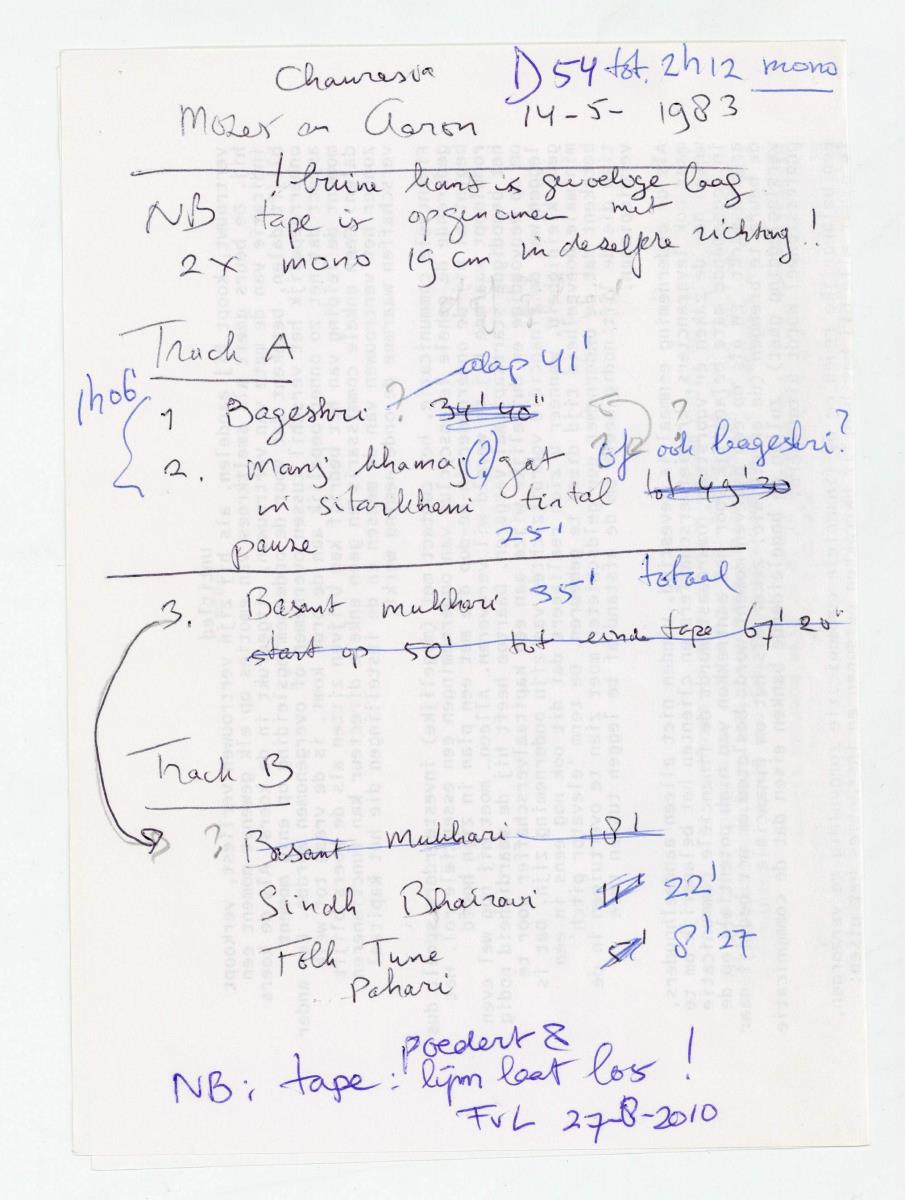 Chaurasia D54 tot. 2h12 mono
Mozes en Aaron 14-5-1983
! bruine kant is gevoelige laag
NB tape is opgenomen met
2x mono 19 cm in dezelfde richting!
Track A
alap 41'
1h06'
1 Bageshri ? 34' 40"
?
2. manj khamaj (?) gat òf ook bageshri?
in sitarkhani tintal tot 49' 30
pauze 25'
3. Basant mukhari 35' totaal
start op 50' tot einde tape 67' 20"
Track B
? Basant Mukhari 18'
Sindh Bhairavi 11' 22'
Folk Tune 5' 8' 27
Pahari
poedert &
NB: tape: lijm laat los!
FvL 27-8-2010